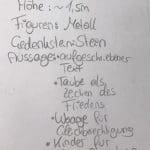 Höhe: ~1,5m
Figuren: Metall
Gedenkstein: Steen
Aussage: aufgeschriebener
Text
• Taube als
Zeichen des
Friedens
• Waage für
Gleichberechtigung
• Kinder für